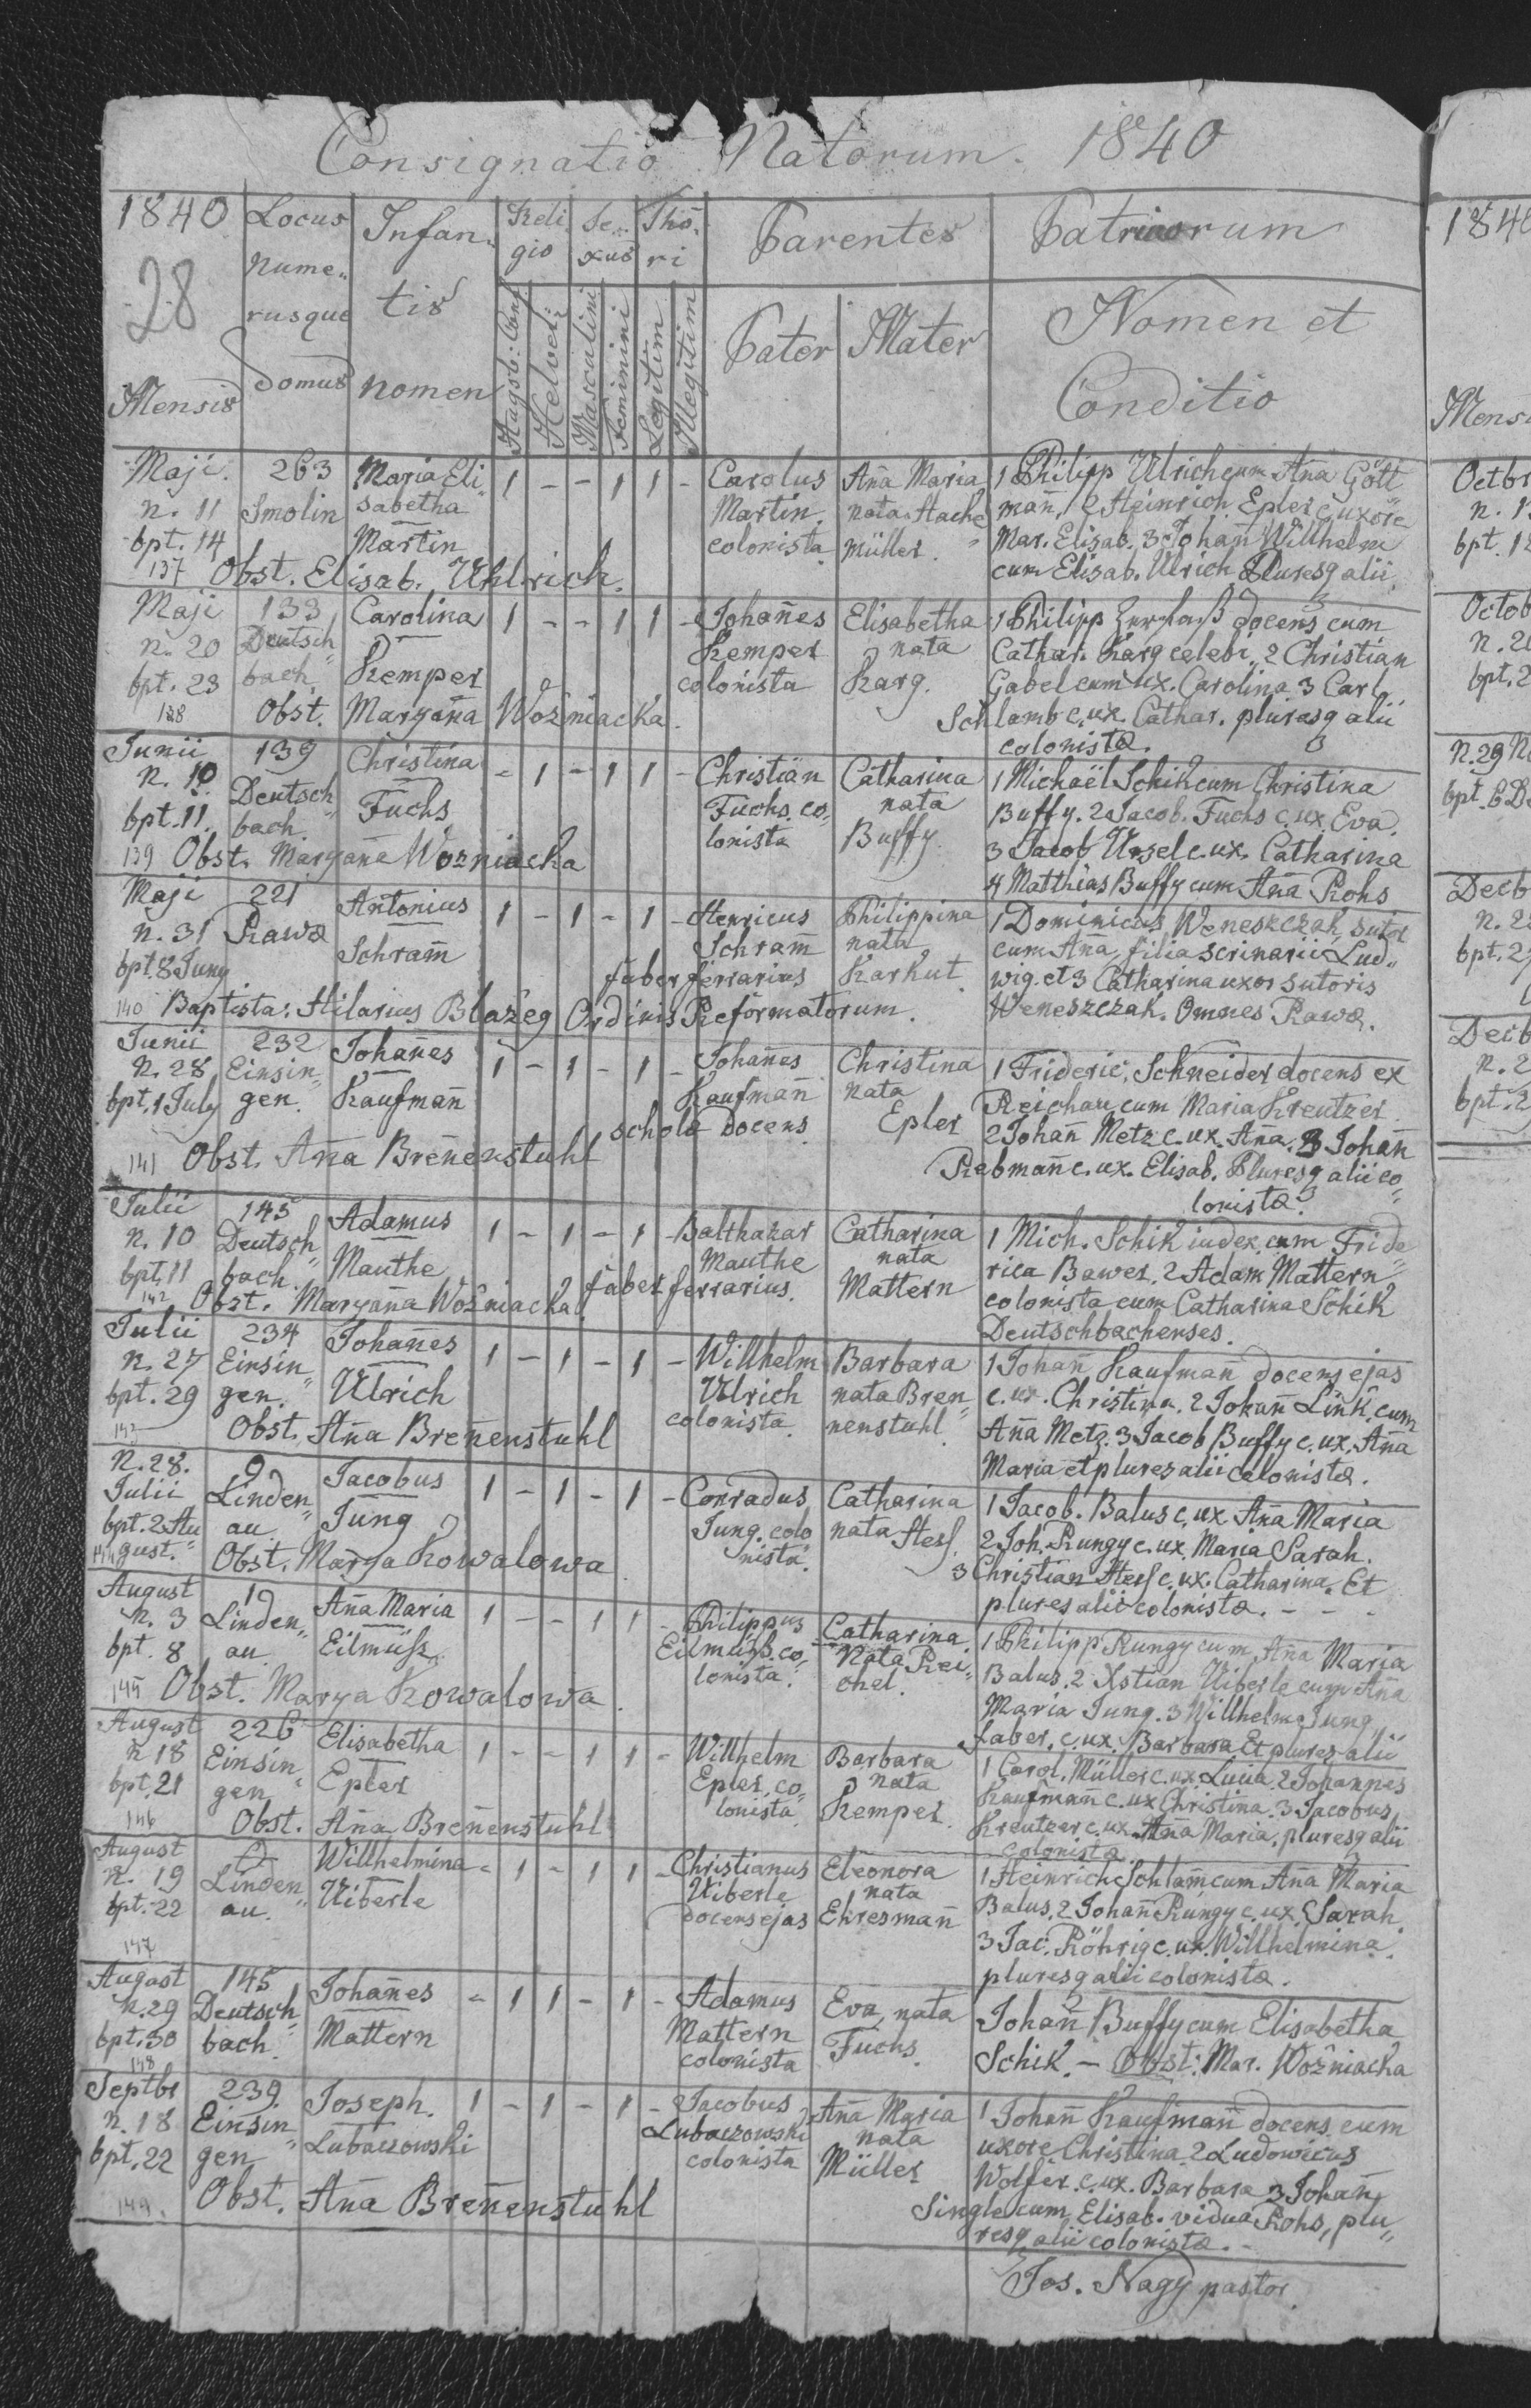 Consignatio Natorum. 1840
1840 Locus Infan- Reli Se- Tho- Parentes Patrinorum
28 Nume- gio xus ri
rusque tis
Domus nomen Augsb: Conf Helvet: Masculini Feminini Legitim Illegitim Pater Mater Nomen et
Mensis Conditio
Maji 263 Maria Eli 1 - - 1 1 - Carolus Aña Maria 1 Philipp Ulrich cum Aña Gött
n. 11 Smolin sabetha Martin nata Hache mañ, 2 Heinrich Epler c. uxore
bpt. 14 Martin colonista Müller. Mar. Elisab. 3 Johañ Willhelm
137 Obst. Elisab. Uhlrich. cum Elisab. Ulrich Pluresq alii.
Maji 133 Carolina 1 - - 1 1 - Johañes Elisabetha 1 Philipp Zerfaß docens cum
n. 20 Deutsch Kemper nata Cathar. Karg celebi. 2 Christian
bpt. 23 bach Kemper colonista Karg. Gabel cum ux. Carolina 3 Carl
138 Obst. Maryaña Woźniacka. Schlamb c. ux. Cathar. pluresq alii
colonistæ.
Junii 139 Christina - 1 - 1 1 - Christian Catharina 1 Michaël Schik cum Christina
n. 10 Deutsch Fuchs Fuchs. co- nata Buffy. 2 Jacob. Fuchs c. ux. Eva.
bpt. 11. bach. lonista Buffy. 3 Jacob Ursel c. ux. Catharina
139 Obst. Maryaña Wozniacka 4 Matthias Buffy cum Aña Rohs
Maji 221 Antonius 1 - 1 - 1 - Henricus Philippina 1 Dominicus Weneszczak, sutor
n. 31 Rawa Schram̃ Schram̃ nata cum Aña, filia scrinarii Lud-
bpt. 8 Juny faber ferrarius Karhut. wig. et 3 Catharina uxor sutoris
140 Baptista: Hilarius Blażeg Ordinis Reformatorum. Weneszczak. Omnes Rawæ.
Junii 232 Johañes 1 - 1 - 1 - Johañes Christina 1 Frideric, Schneider docens ex
n. 28 Einsin- Kaufmañ Kaufmañ nata Reichau cum Maria Kreutzer
bpt. 1 July gen. scholæ docens Epler 2 Johañ Metz c. ux. Aña. 3 Johañ
141 Obst. Aña Breñenstuhl Rebmañ c. ux. Elisab. Pluresq alii co-
lonistæ.
Julii 145 Adamus 1 - 1 - 1 - Balthazar Catharina 1 Mich. Schik iudex, cum Fride-
n. 10 Deutsch Mauthe Mauthe nata rica Bawer. 2 Adam Mattern
bpt. 11 bach. faber ferrarius. Mattern colonista cum Catharina Schik
142 Obst. Maryaña Woźniacka Deutschbachenses.
Julii 234 Johañes 1 - 1 - 1 - Willhelm Barbara 1 Johañ Kaufmañ docens ejas
n. 27 Einsin- Ulrich Ulrich nata Bren- c. ux. Christina. 2 Johañ Link, cum
bpt. 29 gen. colonista. nenstuhl Aña Metz. 3 Jacob Buffy c. ux. Aña
143 Obst. Aña Breñenstuhl Maria et plures alii colonistæ.
N. 28. 9 Jacobus 1 - 1 - 1 - Conradus Catharina 1 Jacob. Balus c. ux. Aña Maria
Julii Linden- Jung Jung. colo nata Hess. 2 Joh. Rungy c. ux. Maria Sarah.
bpt. 2 Au au nista. 3 Christian Hess c. ux. Catharina. Et
144 gust. Obst. Marya Kowalowa plures alii colonistæ. - - -
August 19 Aña Maria 1 - - 1 1 - Philippus Catharina 1 Philipp Rungy cum Aña Maria
n. 3 Linden- Eilmüß Eilmüß. co- Nata Rei- Balus. 2 Xstian Uiberle cum Aña
bpt. 8 au lonista. chel. Maria Jung. 3 Willhelm Jung
145 Obst. Marya Kowalowa. faber. c. ux. Barbara Et plures alii
August 226 Elisabetha 1 - - 1 1 - Willhelm Barbara 1 Carol. Müller c. ux. Lucia 2 Johannes
n 18 Einsin- Epler Epler, co- nata Kaufman c. ux Christina. 3 Jacobus
bpt. 21 gen lonista Kemper. Kreutzer c. ux. Aña Maria, pluresq alii
146 Obst. Aña Breñenstuhl colonistæ
August Willhelmina - 1 - 1 1 - Christianus Eleonora 1 Heinrich Schlam̃ cum Aña Maria
n. 19 Linden- Uiberle Uiberle nata Balus, 2 Johañ Rungy c. ux. Sarah.
bpt. 22 au. docens ejas Ehresmañ 3 Jac. Röhrig c. ux. Willhelmina.
147 pluresq alii colonistæ.
August 145 Johañes - 1 1 - 1 - Adamus Eva, nata Johañ Buffy cum Elisabetha
n. 29 Deutsch Mattern Mattern Fuchs. Schik. - Obst: Mar. Woźniacka
bpt. 30 bach. colonista
148
Septbr 239. Joseph. 1 - 1 - 1 - Jacobus Aña Maria 1 Johañ Kaufmañ docens cum
n. 18 Einsin- Lubaczowski Lubaczowski nata uxore Christina. 2 Ludowicus
bpt. 22 gen colonista Müller Wolfer. c. ux. Barbara 3 Johañ
149. Obst. Aña Breñenstuhl Single cum Elisab. vidua Rohs, plu-
resq alii colonistæ. -
Jos. Nagy pastor.
1840
Mensi
Octbr
n. 1
bpt. 1
Octob
n. 2
bpt. 2
N. 29 N
bpt. 6 D
Decb
n. 2
bpt. 2
Decb
n. 2
bpt. 2